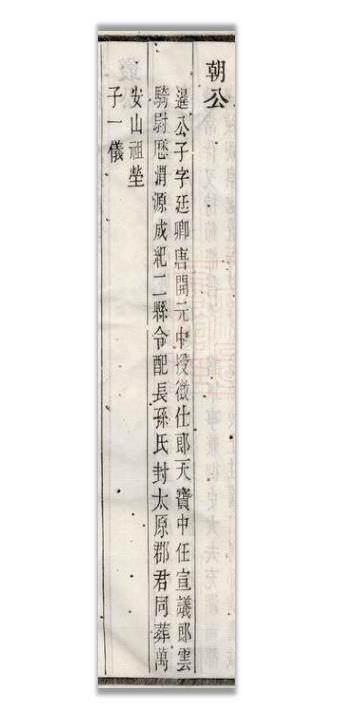 朝公
暹公子字廷卿唐開元中授徵仕郎天寶中任宣議郎雲
騎尉歷渭源成紀二縣令配長孫氏封太原郡君同葬萬
安山祖塋
子一儀